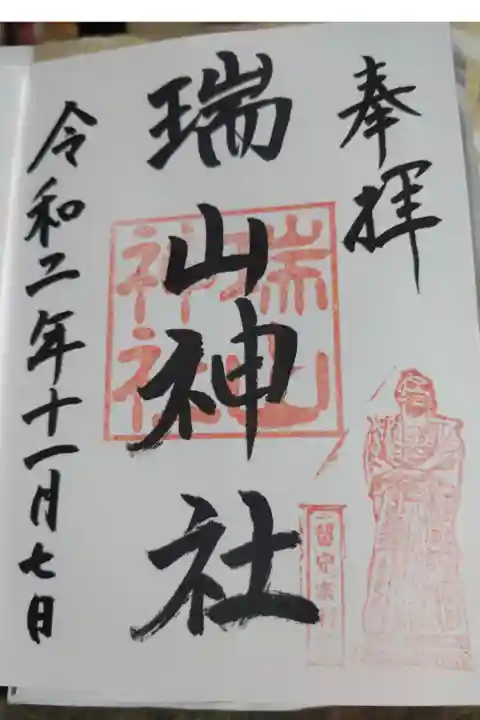 奉拝
瑞山神社
瑞山
神社
留守宗利
令和二年十一月七日